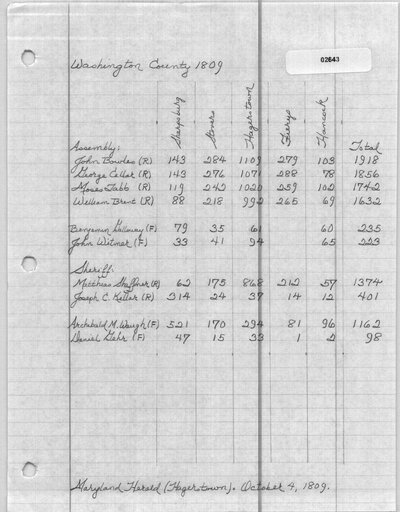 Washington County 1809
02643
Sharpsburg Stones Hagerstown Fierys Hancock
Assembly: Total
John Bowles (R) 143 284 1109 279 103 1918
George Cellar (R) 143 276 1071 288 78 1856
Moses Tabb (R) 119 242 1020 259 102 1742
William Brent (R) 88 218 992 265 69 1632
Benjamin Galloway (F) 79 35 61 60 235
John Witmer (F) 33 41 94 65 223
Sheriff:
Matthias Shaffner (R) 62 175 868 212 57 1374
Joseph C. Kellar (R) 314 24 37 14 12 401
Archibald M. Waugh (F) 521 170 294 81 96 1162
Daniel Gehr (F) 47 15 33 1 2 98
Maryland Herald (Hagerstown). October 4, 1809.